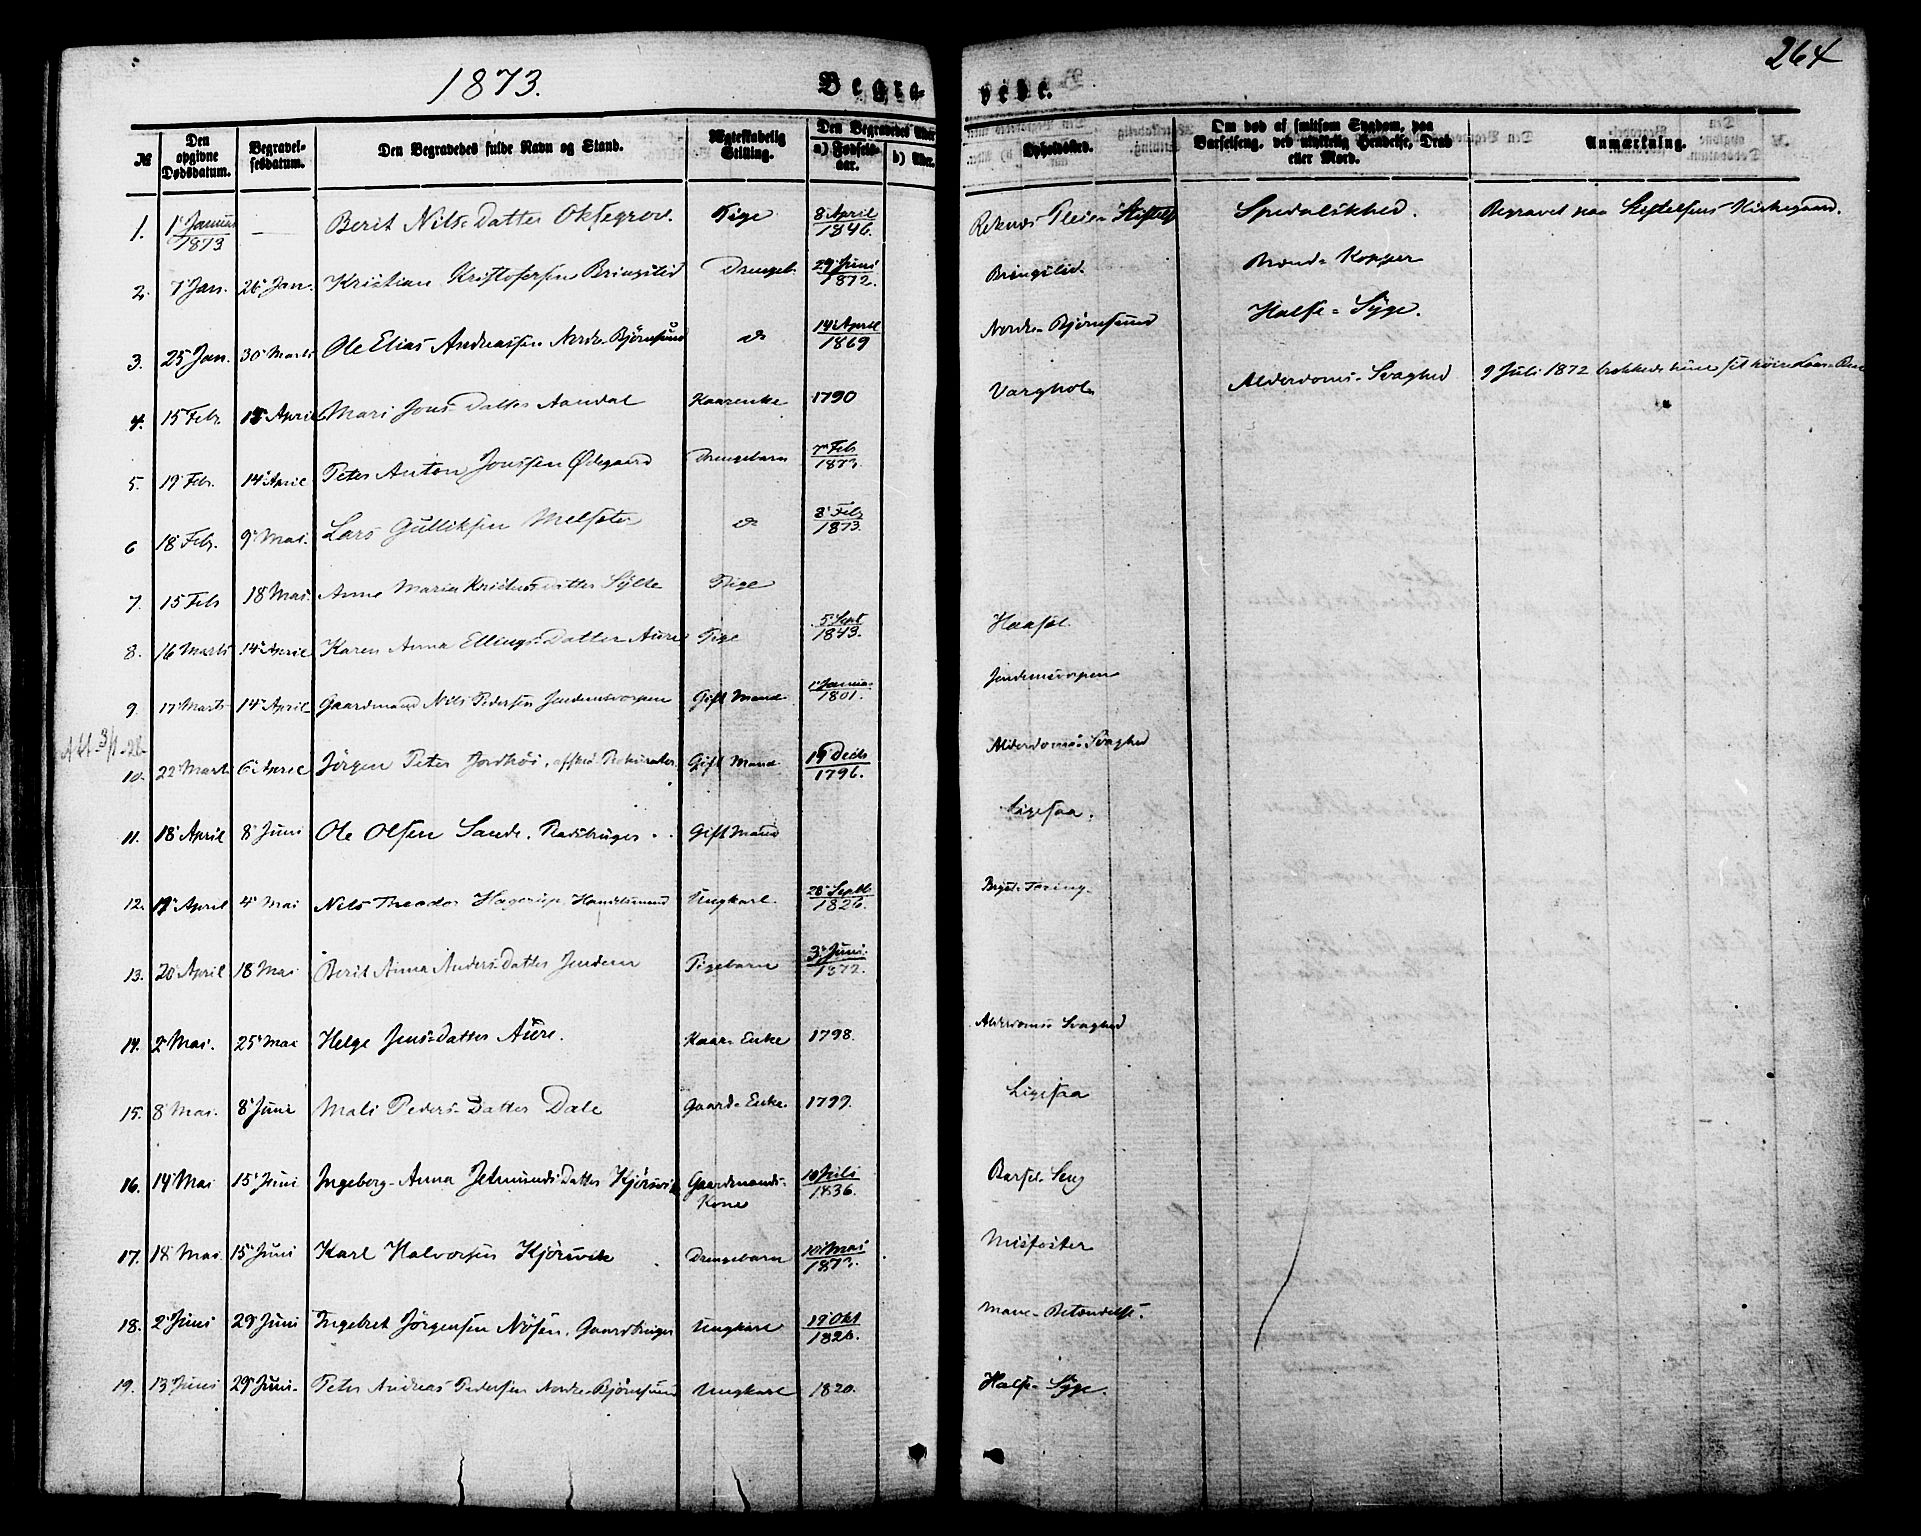 264
1873.
Begravede.
№
Den opgivne Dødsdatum.
Begravelsesdatum.
Den Begravedes fulde Navn og Stand.
Ægteskabelig Stilling.
Den Begravedes Alder
a) Fødselsaar.
b) Alder.
Opholdssted.
Om død af smitsom Sygdom, paa Barselseng, ved ulykkelig Hændelse, Drab eller Mord.
Anmærkning.
1. 1' Januar 1873 — Berit Nils-Datter Oksegrov. Pige 8 April 1846. Reknæs Pleie-Stiftelse Spedalskhed. Begravet paa Stiftelsens Kirkegaard.
2. 7' Jan. 26' Jan. Kristian Kristofersen Bringslid Drengeb. 29' Juni 1872. Bringslid. Kopper
3. 25' Jan. 30' Marts Ole Elias Andreassen Nordre Bjørnsund do 14' April 1869 Nordre-Bjørnsund Halse-Syge.
4. 15 Febr. 15 April Mari Jons-Datter Aandal Kaarenke 1790 Varghol Alderdoms-Svaghed 9 Juli 1872
5. 19' Febr. 14' April Peter Anton Jonssen Ødegaard Drengebarn 7' Feb 1873.
6 18' Febr. 9' Mai. Lars Gulliksen Melsæter do 8' Feb 1873.
7. 15 Feb 18 Mai. Anne Maria Kristens Datter Sylte Pige
8. 16 Marts 14' April Karen Anna Ellings-Datter Aure Pige 5' Sept 1843.
9. 17' Marts 14' April Gaardmand Nils Pedersen Jendemsvorpen Gift Mand 1' Januar 1801. Jendemsvorpen
10. 22' Marts 6' April Jörgen Peter Gift Mand 19 Decb 1796. Alderdoms-Svaghed
11. 18' April 8' Juni Ole Olsen Sande. Gift Mand Ligesaa.
12. 19' April 4' Mai Nils Theodor Hagerup. Handelsmand Ungkarl. 28' Septb 1826.
13. 20' April 18 Mai Berit Anna Anders-Datter Jendem Pigebarn 3' Juni 1872.
14. 2' Mai. 25' Mai Helge Jens-Datter Aure. Kaar-Enke 1798. Alderdoms Svaghed
15. 8' Mai. 8' Juni Mali Peders-Datter Dale Gaard-Enke 1799. Ligesaa
16. 14' Mai 15' Juni Ingeborg-Anna Jetmunds-Datter Kjörsvik Gaardmands-Kone 10 Juli 1836. Barsel-Seng
17. 18' Mai 15' Juni Karl Halvorsen Kjörsvik Drengebarn 10' Mai 1873. Misfoster
18. 2' Juni 29' Juni Ingebret Jörgensen Nösen. Gaardbruger Ungkarl 19' Okt 1826. Mave-Betændelse.
19. 13' Juni 29' Juni. Peter Andreas Pedersen Nordre-Bjørnsund Ungkarl 1820. Halse-Syge.